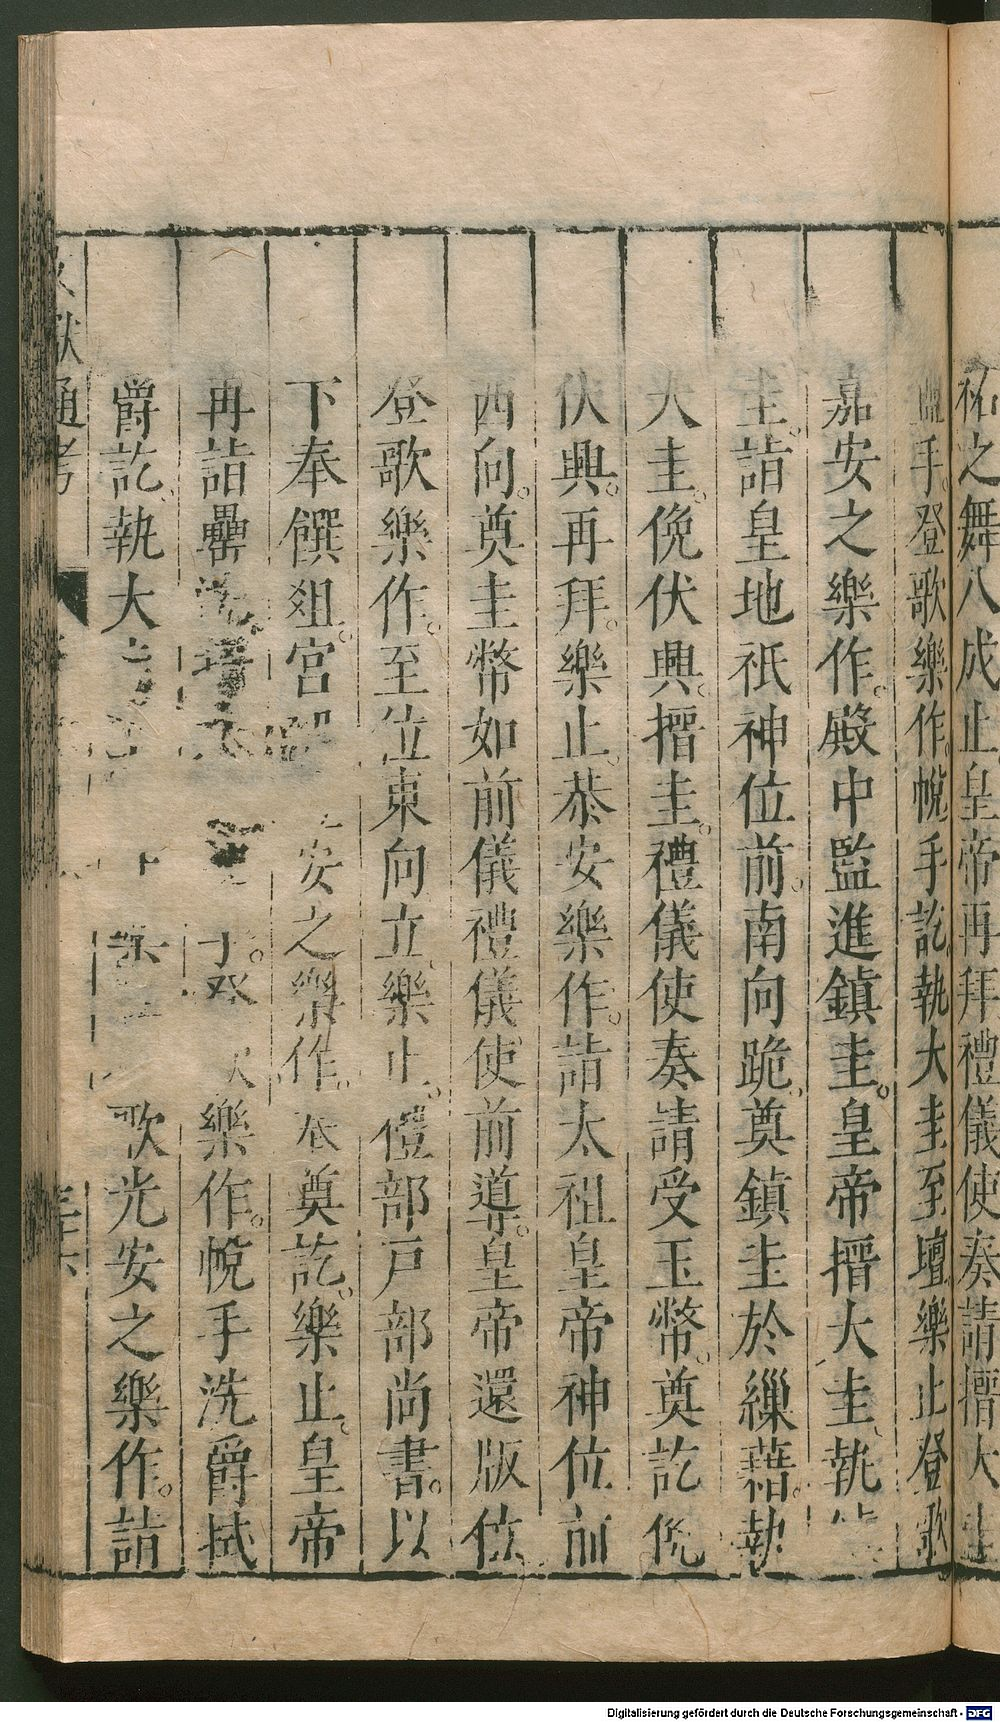 祐之舞八成止皇帝再拜禮儀使奏請搢大圭
盥手登歌樂作帨手訖執大圭至壇樂止登歌
嘉安之樂作。殿中監進鎮圭。皇帝搢大圭、執
圭、詣皇地祇神位前。南向跪。奠鎮圭於繅藉。執
大圭。俛伏興。搢圭。禮儀使奏請受玉幣。奠訖俛
伏興。再拜。樂止。恭安樂作。詣太祖皇帝神位前
西向。奠圭幣如前儀禮儀使前導。皇帝還版位
登歌樂作。至位東向立樂止。禮部戶部尚書。以
下奉饌俎。宮 安之樂作。奉奠訖。樂止、皇帝
再詣罍洗 樂作。帨手洗爵拭
爵訖。執大 歌光安之樂作。詣
文獻通考
Digitalisierung gefördert durch die Deutsche Forschungsgemeinschaft - DFG